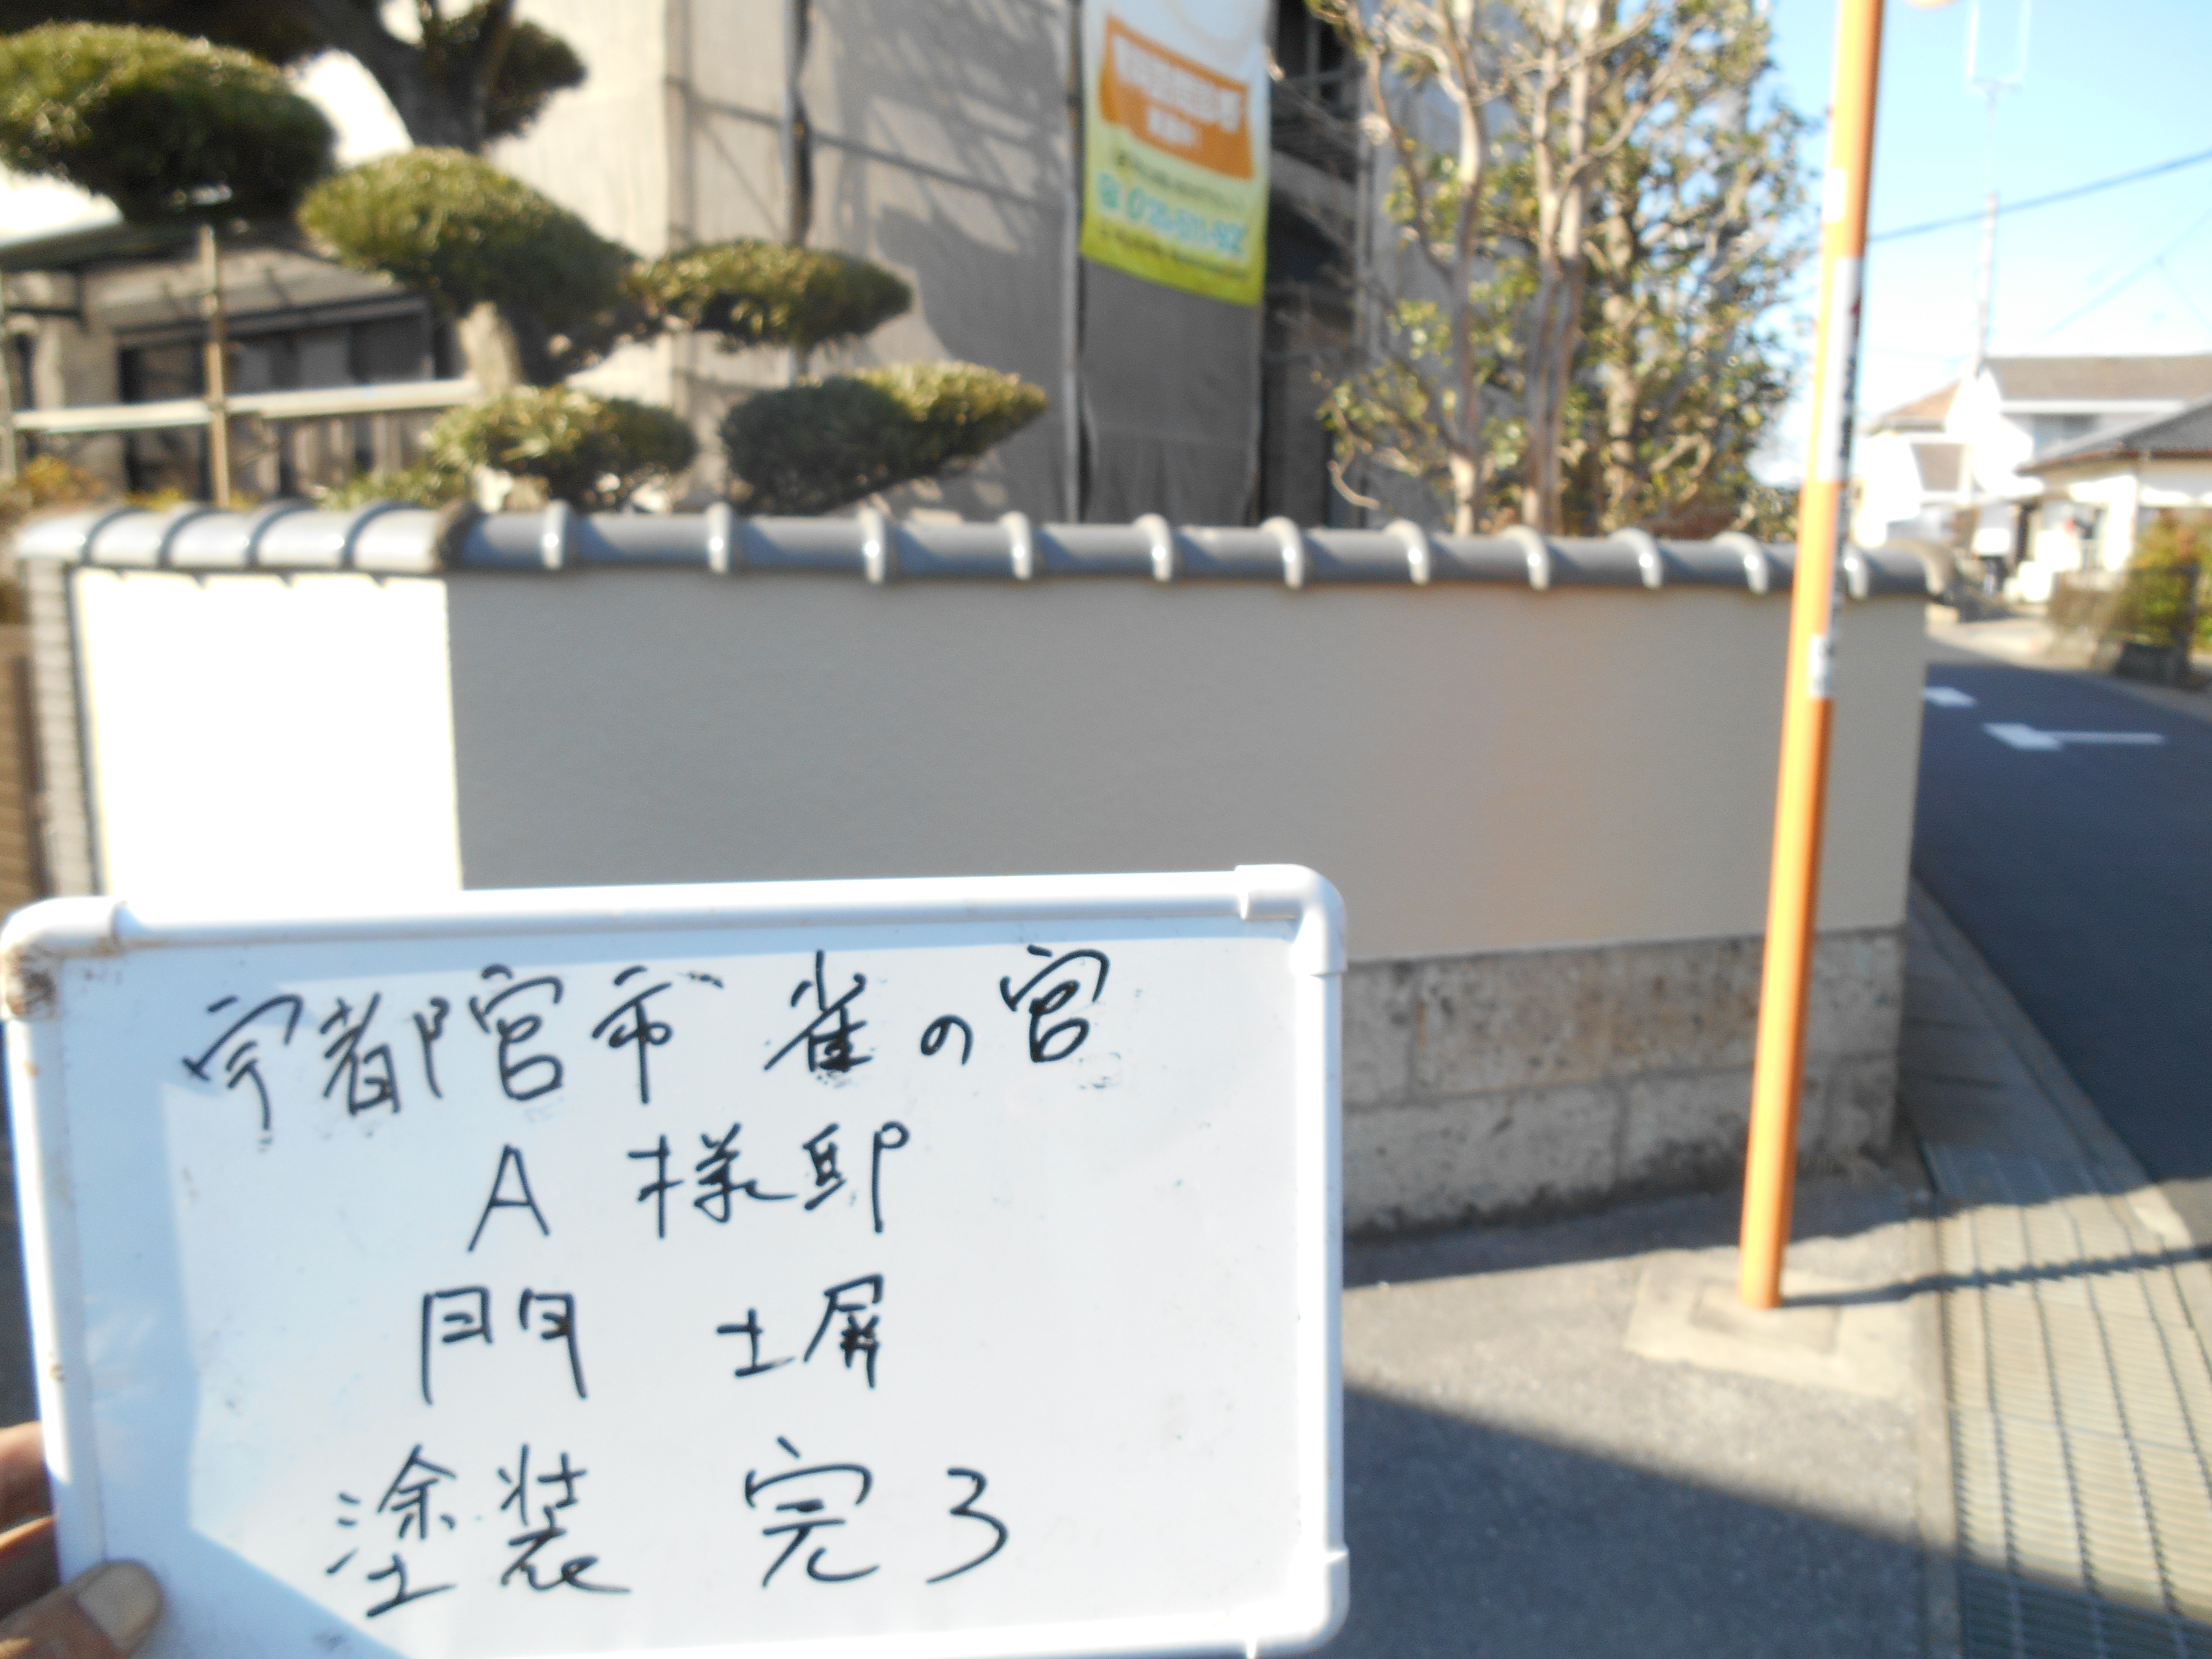 宇都宮市 雀の宮
A 様邸
門 塀
塗装 完了